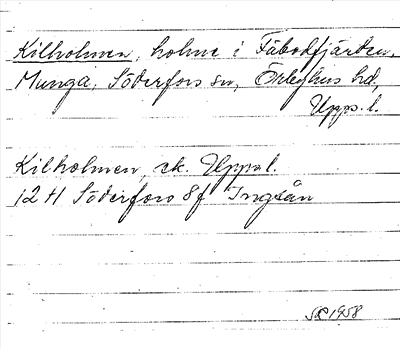 Kilholmen, holme i Fäbodfjärden,
Munga, Söderfors sn, Örbyhus hd,
Upps. l.
Kilholmen, ek. Uppsal.
12 H Söderfors 8f Ingsån
1958